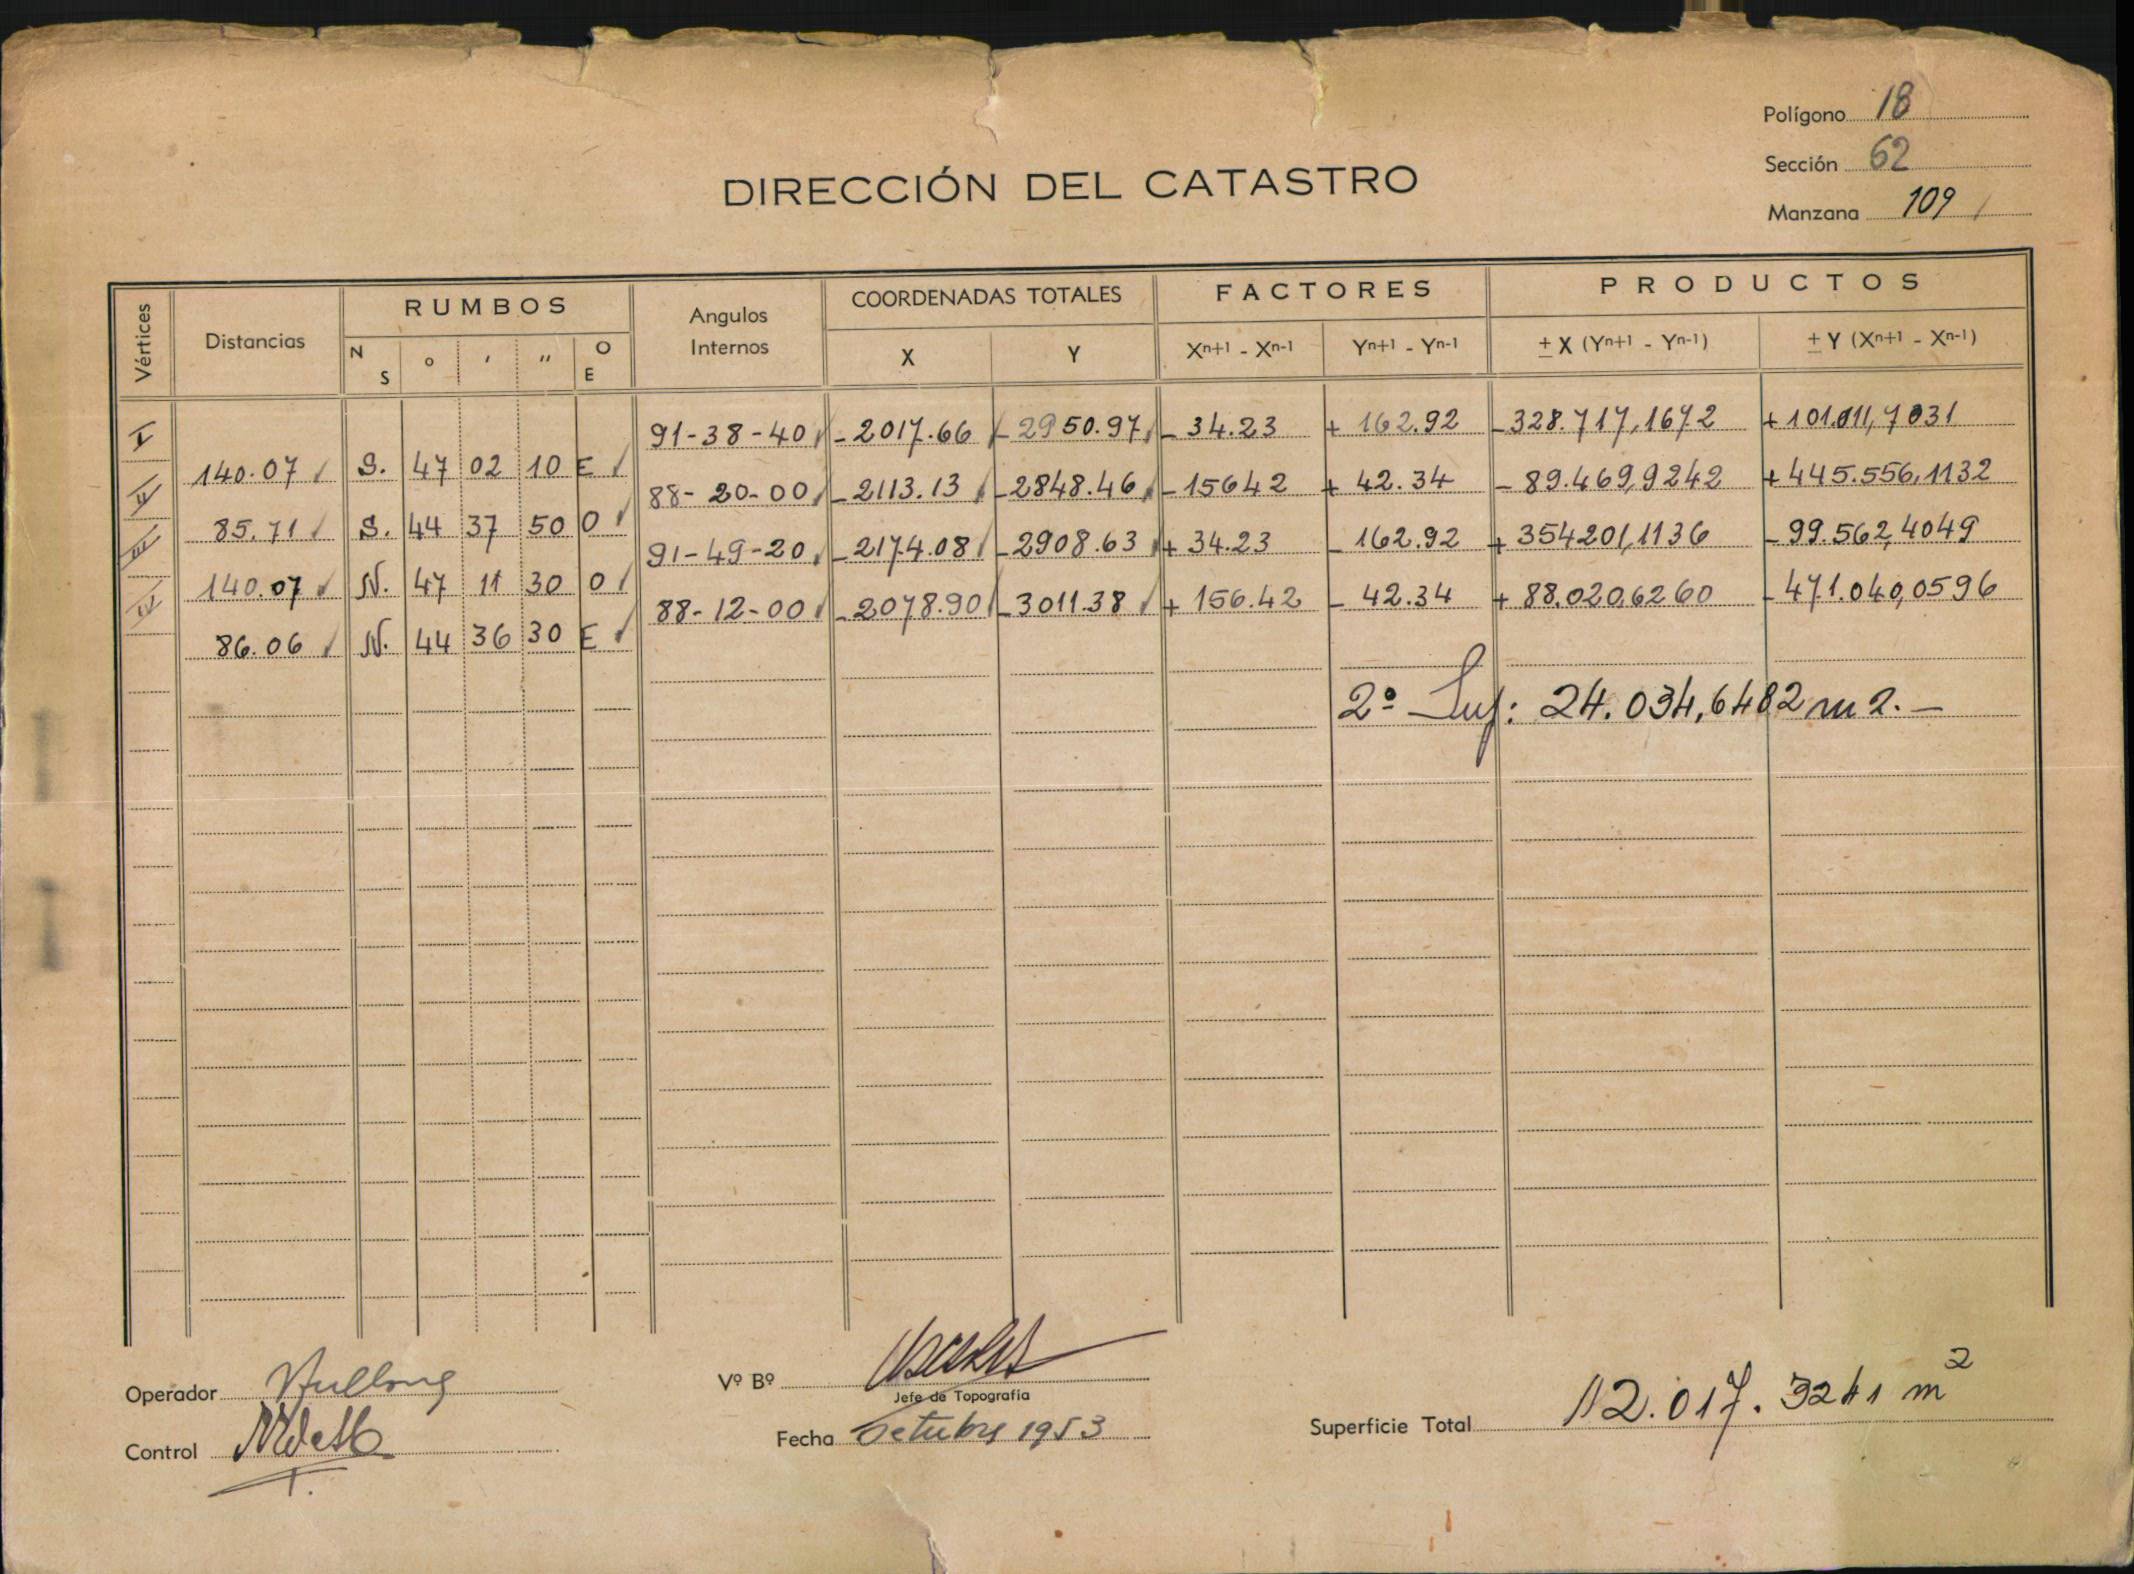 Polígono 18
Sección 62
Manzana 109
DIRECCIÓN DEL CATASTRO
Vértices Distancias RUMBOS Angulos Internos COORDENADAS TOTALES FACTORES PRODUCTOS
N S o ' '' O E X Y Xn+1 - Xn-1 Yn+1 - Yn-1 ± X (Yn+1 - Yn-1) ± Y (Xn+1 - Xn-1)
I 91-38-40 -2017.66 -2950.97 -34.23 + 162.92 -328.717,1672 +101.011,7031
140.07 S. 47 02 10 E
II 88-20-00 -2113.13 -2848.46 -15642 + 42.34 -89.469,9242 +445.556,1132
85.71 S. 44 37 50 O
III 91-49-20 -2174.08 -2908.63 +34.23 -162.92 +354201,1136 -99.562,4049
140.07 N. 47 11 30 O
IV 88-12-00 -2078.90 -3011.38 +156.42 -42.34 +88.020,6260 -471.040,0596
86.06 N. 44 36 30 E
2º Sup: 24.034,6482 m2.-
Operador
Control
Vº Bº
Jefe de Topografía
Fecha Octubre 1953
Superficie Total 12.017.3241 m2